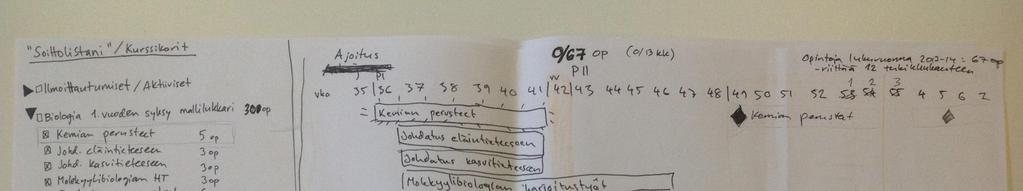 "Soittolistani" / Kurssikorit
▶ □ Ilmoittautumiset / Aktiiviset
▼ □ Biologia 1. vuoden syksy mallilukkari 30 op
☒ Kemian perusteet 5 op
☒ Johd. eläintieteeseen 3 op
☒ Johd. kasvitieteeseen 3 op
☒ Molekyylibiologian HT 3 op
Ajoitus
0/67 op (0/13 kk)
Opintoja lukuvuonna 2013-14: 67 op
- riittää 12 tukikuukauteen
PI
PII
VV
1 2 3
vko 35 36 37 38 39 40 41 42 43 44 45 46 47 48 49 50 51 52 53 54 55 4 5 6 2
= Kemian perusteet =
◆ Kemian perustat
Johdatus eläintieteeseen
Johdatus kasvitieteeseen
Molekyylibiologian harjoitustyöt